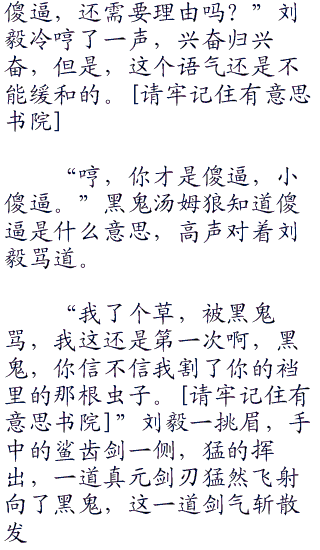 傻逼，还需要理由吗？”刘
毅冷哼了一声，兴奋归兴
奋，但是，这个语气还是不
能缓和的。[请牢记住有意思
书院]
“哼，你才是傻逼，小
傻逼。”黑鬼汤姆狼知道傻
逼是什么意思，高声对着刘
毅骂道。
“我了个草，被黑鬼
骂，我这还是第一次啊，黑
鬼，你信不信我割了你的裆
里的那根虫子。[请牢记住有
意思书院]”刘毅一挑眉，手
中的鲨齿剑一侧，猛的挥
出，一道真元剑刃猛然飞射
向了黑鬼，这一道剑气斩散
发